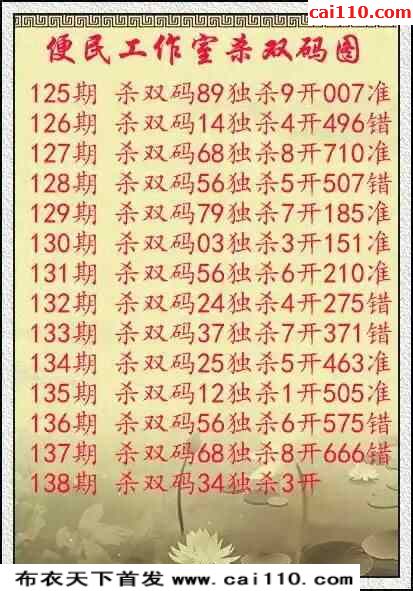 cai110.com
便民工作室杀双码图
125期 杀双码89独杀9开007准
126期 杀双码14独杀4开496错
127期 杀双码68独杀8开710准
128期 杀双码56独杀5开507错
129期 杀双码79独杀7开185准
130期 杀双码03独杀3开151准
131期 杀双码56独杀6开210准
132期 杀双码24独杀4开275错
133期 杀双码37独杀7开371错
134期 杀双码25独杀5开463准
135期 杀双码12独杀1开505准
136期 杀双码56独杀6开575错
137期 杀双码68独杀8开666错
138期 杀双码34独杀3开
布衣天下首发 www.cai110.com